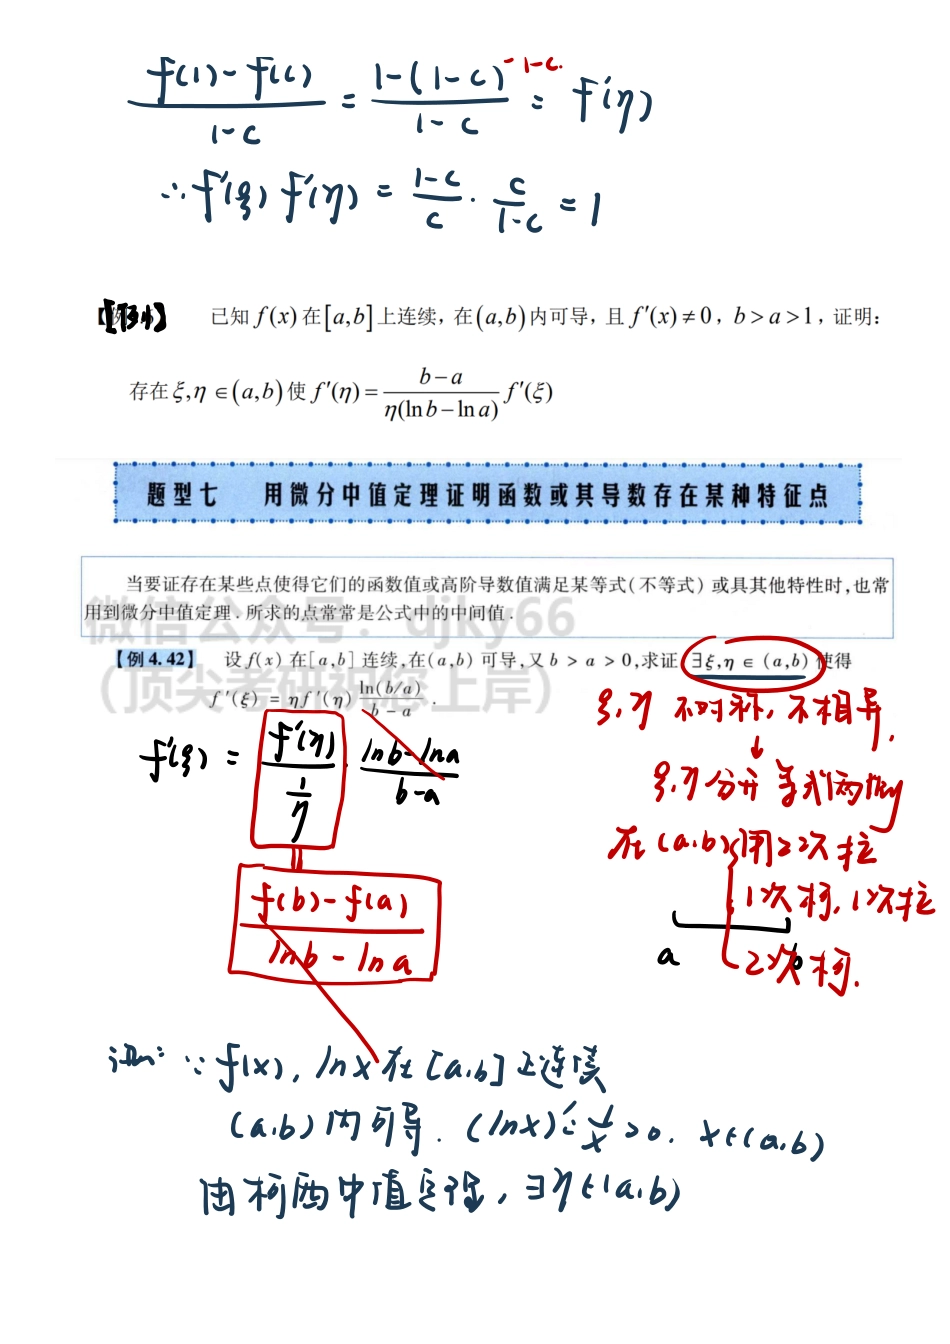 f(1)-f(c) / 1-c = 1-(1-c) / 1-c = f'(η)
-1-c.
∴ f'(ξ) f'(η) = 1-c / c · c / 1-c = 1
【例】 已知 f(x) 在 [a,b] 上连续，在 (a,b) 内可导，且 f′(x) ≠ 0，b > a > 1，证明：
存在 ξ,η ∈ (a,b) 使 f′(η) = b−a / η(ln b − ln a) f′(ξ)
题型七 用微分中值定理证明函数或其导数存在某种特征点
当要证存在某些点使得它们的函数值或高阶导数值满足某等式(不等式)或具其他特性时,也常
用到微分中值定理.所求的点常常是公式中的中间值.
微信公众号：djky66
【例 4.42】 设 f(x) 在[a,b] 连续,在(a,b) 可导,又 b > a > 0,求证 ∃ξ,η ∈ (a,b) 使得
f′(ξ) = ηf′(η) ln(b/a) / b − a .
(顶尖考研祝您上岸)
ξ,η 不对称,不相异,
f'(ξ) = f'(η) / 1/η · lnb-lna / b-a
↓
ξ,η分开 等式两侧
在(a,b) 用2次拉
f(b)-f(a) / lnb - lna
1次柯,1次拉
a b
2次柯.
证: ∵ f(x), lnx 在 [a,b] 上连续
(a,b) 内可导. (lnx)'=1/x >0. x∈(a,b)
由柯西中值定理, ∃η∈(a,b)